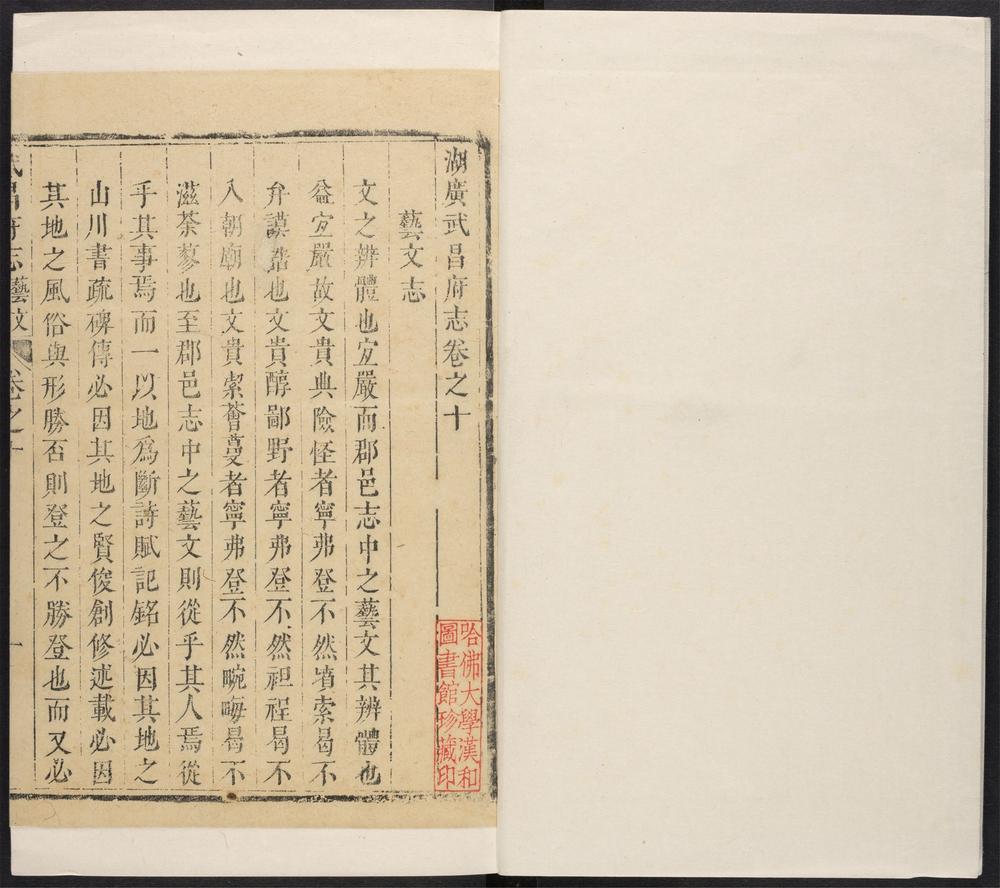 湖廣武昌府志卷之十
藝文志
文之辨體也宜嚴而郡邑志中之藝文其辨體也
益宜嚴故文貴典險怪者寧弗登不然墳索曷不
弁謨誥也文貴醇鄙野者寧弗登不然裋裎曷不
入朝廟也文貴潔薈蔓者寧弗登不然畹畮曷不
滋荼蓼也至郡邑志中之藝文則從乎其人焉從
乎其事焉而一以地為斷詩賦記銘必因其地之
山川書疏碑傳必因其地之賢俊創修述載必因
其地之風俗與形勝否則登之不勝登也而又必
武昌府志藝文 卷之十 一
哈佛大學漢和
圖書館珍藏印